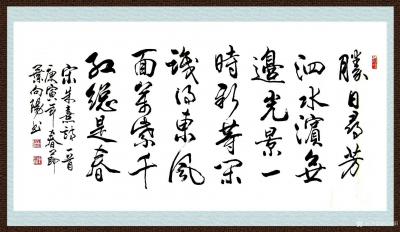 勝日尋芳
泗水濱無
邊光景一
時新等閒
識得東風
面萬紫千
紅總是春
宋朱熹詩一首
庚寅年春節
景向陽书